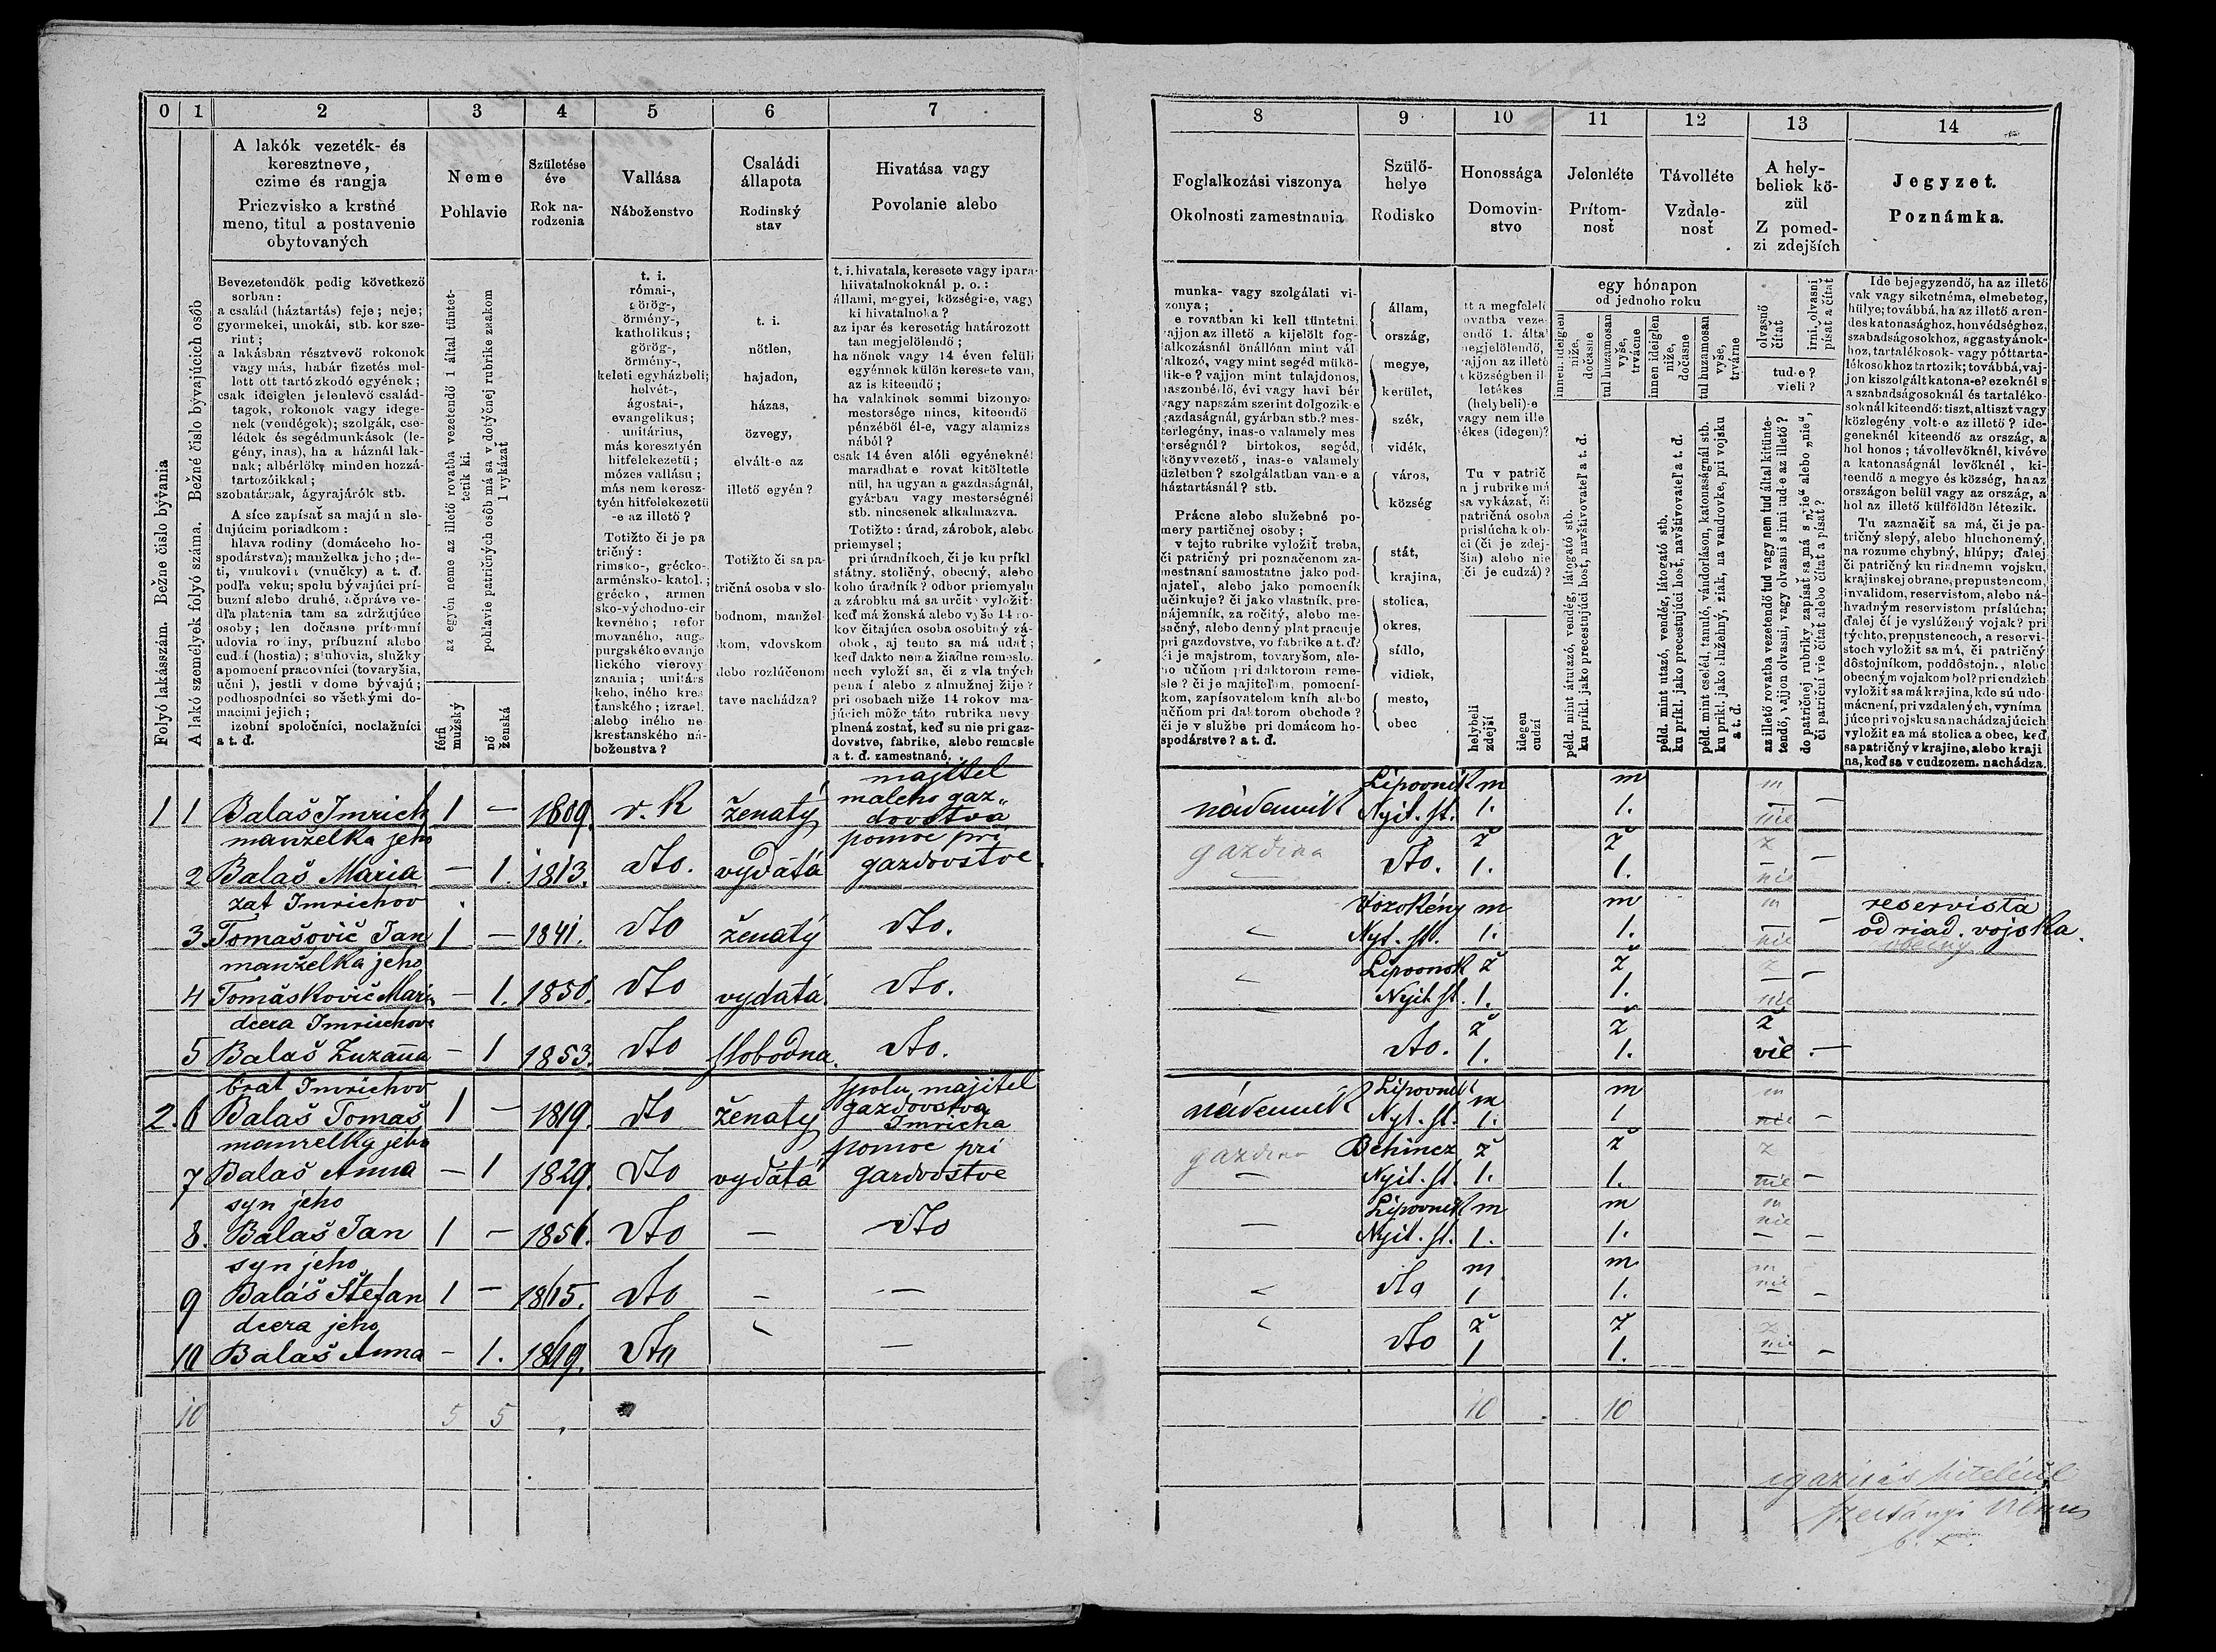 0 1 2 3 4 5 6 7
A lakók vezeték- és
keresztneve,
czime és rangja
Priezvisko a krstné
meno, titul a postavenie
obytovaných
Neme
Pohlavie
Születése
éve
Rok na-
rodzenia
Vallása
Náboženstvo
Családi
állapota
Rodinský
stav
Hivatása vagy
Povolanie alebo
Folyó lakásszám. Bežne čislo bývania
A lakó személyek folyó száma. Bežné číslo bývajúcich osôb
Bevezetendők pedig következő
sorban:
a család (háztartás) feje; neje;
gyermekei, unokái, stb. kor sze-
rint;
a lakásban résztvevő rokonok
vagy más, habár fizetés mel-
lett ott tartózkodó egyének;
csak ideiglen jelenlevő család-
tagok, rokonok vagy idege-
nek (vendégek); szolgák, cse-
lédek és segédmunkások (le-
gény, inas), ha a háznál lak-
nak; albérlők, minden hozzá-
tartozóikkal;
szobatársak, ágyrajárók stb.
A síce zapísať sa majú n sle-
dujúcim poriadkom:
hlava rodiny (domáceho ho-
spodárstva); manželka jeho; de-
ti, vnukovia (vnučky) a t. ď.
podľa veku; spolu bývajúci prí-
buzní alebo druhé, ačpráve ve-
dľa platenia tam sa zdržujúce
osoby; len dočasne prítomní
udovia rodiny, príbuzní alebo
cudzí (hostia); sluhovia, služky
apomocní pracovníci (tovaryšia,
učni), jestli v dome bývajú;
podhospodníci so všetkými do-
macimi jejich;
izební spoločníci, noclažníci
a t. ď.
az egyén neme az illető rovatba vezetendő 1 által tüntet-
tetik ki.
pohlavie patričných osôb má sa v dotyčnej rubrike znakom
1 vykázať
férfi
mužský
nő
ženská
t. i.
római-,
görög-,
örmény-,
katholikus;
görög-,
örmény-,
keleti egyházbeli;
helvét-,
ágostai-,
evangelikus;
unitárius,
más keresztyén
hitfelekezetü;
mózes vallásu;
más nem keresz-
tyén hitfelekezetü
-e az illető?
Totižto či je pa
tričný:
rimsko-, grécko-
arménsko-katol.;
grécko, armen
sko-východno-cir
kevného; refor
movaného, augs
purgského evanje
lického vierovy
znania; unitárs
keho, iného kres
ťanského; izrael.
alebo iného ne
kresťanského ná-
boženstva?
t. i.
nőtlen,
hajadon,
házas,
özvegy,
elvált-e az
illető egyén?
Totižto či sa pa-
tričná osoba v slo-
bodnom, manžel-
skom, vdovskom
alebo rozlúčenom
stave nachádza?
t. i. hivatala, keresete vagy ipara-
hiivatalnokoknál p. o.:
állami, megyei, községi-e, vagy
ki hivatalnoka?
az ipar és keresetág határozott
tan megjelölendő;
ha nőnek vagy 14 éven felüli
egyénnek külön keresete van,
az is kiteendő;
ha valakinek semmi bizonyos
mestersége nincs, kiteendő
pénzéből él-e, vagy alamizs
nából?
csak 14 éven alóli egyéneknél
maradhat e rovat kitöltetle
nül, ha ugyan a gazdaságnál,
gyárban vagy mesterségnél
stb. nincsenek alkalmazva.
Totižto: úrad, zárobok, alebo
priemysel;
pri úradníkoch, či je ku príkl.
štátny. stoličný, obecný, alebo
koho úradník? odbor priemyslu
a zárobku má sa určite vyložiť;
keď má ženská alebo vyše 14 ro-
kov čítajúca osoba osobitný zá-
robok, aj tento sa má udať;
keď dakto nema žiadne remeslo,
nech vyloží sa, či z vla tných
peňazí alebo z almužnoj žije?
pri osobách niže 14 rokov ma-
júcich môže táto rubrika nevy
plnená zostať, keď su nie pri gaz-
dovstve, fabrike, alebo remesle
a t. ď. zamestnané.
1 1 Balaš Imrich 1 — 1809. r. k ženatý majitel
maleho gaz„
dovstva
manželka jeho
2 Balaš Maria — 1. 1813. dto. vydatá pomoc pri
gazdovstve.
zat Imrichov
3. Tomašovič Jan 1 — 1841. dto ženatý dto.
manželka jeho
4 Tomáskovič Maria — 1. 1850. dto vydatá. dto.
dcera Imrichova
5 Balaš Zuzanna — 1 1853. dto slobodna. dto.
brat Imrichov
2. 6 Balaš Tomaš 1 — 1819. dto ženatý spolu majitel
gazdovstva
Imricha
manzelka jeho
7 Balaš Anna — 1 1829. dto vydatá pomoc pri
gazdovstve
syn jeho
8. Balaš Jan 1 — 1856. dto — dto
syn jeho
9 Baláš Štefan 1 — 1865. dto — —
dcera jeho
10 Balaš Anna — 1. 1869. dto —
10 5 5
8 9 10 11 12 13 14
Foglalkozási viszonya
Okolnosti zamestnania
Szülő-
helye
Rodisko
Honossága
Domovin-
stvo
Jelenléte
Prítom-
nosť
Távolléte
Vzdale-
nosť
A hely-
beliek kö-
zül
Z pomed-
zi zdejších
Jegyzet.
Poznámka.
munka- vagy szolgálati vi-
zonya;
e rovatban ki kell tüntetni,
vajjon az illető a kijelölt fog-
lalkozásnál önállóan mint vál-
lalkozó, vagy mint segéd mükö-
dik-e? vajjon mint tulajdonos,
haszonbérlő, évi vagy havi bér
vagy napszám szerint dolgozik-e
gazdaságnál, gyárban stb.? mes-
terlegény, inas-e valamely mes
terségnél? birtokos, segéd,
könyvvezető, inas-e valamely
üzletben? szolgálatban van-e a
háztartásnál? stb.
Prácne alebo služebné po-
mery partičnej osoby;
v tejto rubrike vyložiť treba,
či patričný pri poznačenom za-
mestnaní samostatne jako pod-
njateľ, alebo jako pomocník
učinkuje? či jako vlastník, pre-
nájemník, za ročitý, alebo me-
sačný, alebo denný plat pracuje
pri gazdovstve, vo fabrike a t. ď.?
či je majstrom, tovaryšom, ale-
bo učňom pri daktorom reme-
sle? či je majiteľom, pomocní-
kom, zapísovatelom kníh alebo
učňom pri daktorom obchode?
či je v službe pri domácom ho-
spodárstve? a t. ď.
állam,
ország,
megye,
kerület,
szék,
vidék,
város,
község
stát,
krajina,
stolica,
okres,
sídlo,
vidiek,
mesto,
obec
itt a megfelelő
rovatba veze-
endő 1. által
megjelölendő,
vajjon az illető
a községben il-
letékes
(helybeli)-e
vagy nem ille
tékes (idegen)?
Tu v patrič
n j rubrike má
sa vykázať, či
patričná osoba
prislúcha k ob-
ci (či je zdej-
šia) alebo nie
(či je cudzá)?
helybeli
zdejší
idegen
cudzí
egy hónapon
od jednoho roku
innen ideiglen
niže,
dočasne
tul huzamosan
vyše,
trvácne
innen ideiglen
niže,
dočasne
tul huzamosan
vyše,
trvárne
péld. mint átutazó, vendég, látogató stb.
ku príkl. jako precestujúci hosť, navštivovateľ a t. ď.
péld. mint utazó, vendég, látogató stb.
ku príkl. jako precestujúci hosť, navštivovateľ a t. ď.
péld. mint cseléd, tanuló, vándorláson, katonaságnál stb.
ku príkl. jako služebný, žiak, na vandrovke, pri vojsku
a t. ď.
olvasnó
čítať
irni, olvasni,
písať a čítať
tud-e?
vieli?
az illető rovatba vezetendő tud vagy nem tud által kitünte-
tendő, vajjon olvasni, vagy olvasni s irni tud-e az illető?
do patričnej rubriky zapísať sa má s „vie“ alebo „nie“,
či patrični vie čítať alebo čítať a písať?
Ide bejegyzendő, ha az illető
vak vagy siketnéma, elmebeteg,
hülye; továbbá, ha az illető a ren-
des katonasághoz, honvédséghez,
szabadságosokhoz, aggastyánok-
hoz, tartalékosok- vagy póttarta-
lékosokhoz tartozik; továbbá, vaj-
jon kiszolgált katona-e? ezeknél s
a szabadságosoknál és tartaléko-
soknál kiteendő: tiszt, altiszt vagy
közlegény volt-e az illető? ide-
geneknél kiteendő az ország, a
hol honos; távollevőknél, kivéve
a katonaságnál levőknél, ki-
teendő a megye és község, ha az
országon belül vagy az ország, a
hol az illető külföldön létezik.
Tu zaznačiť sa má, či je pa-
tričný slepý, alebo hluchonemý,
na rozume chybný, hlúpy; ďalej
či patričný ku riadnemu vojsku,
krajinskej obrane, prepustencom,
invalidom, reservistom, alebo ná-
hvadným reservistom príslúcha;
ďalej čí je vyslúžený vojak? pri
týchto, prepustencoch, a reservi-
stoch vyložiť sa má, či patričný
dôstojníkom, poddôstojn., alebo
obecným vojakom bol? pri cudzích
vyložiť sa má krajina, kde sú udo-
mácnení, pri vzdalených, vyníma
júce pri vojsku sa nachádzajúcich
vyložiť sa má stolica a obec, keď
sa patričný v krajine, alebo kraji
na, keď sa v cudzozem. nachádza.
nádennik Lipovnik
Nyit. st. m
1. m
1. m
nie —
gazdina dto. ž
1. ž
1. ž
nie —
Nyt. st. m
1. m
1. m
nie — reservista
od riad. vojska.
obecný
Lipovnik
Nyit st. ž
1. ž
1. ž
nie —
dto. ž
1. ž
1. ž
vie . —
nádennik Lipovnik
Nyt. st. m
1. m
1 m
nie —
gazdina Behincz
Nyit. st. ž
1. ž
1. ž
nie —
— Lipovnik
Nyit. st. m
1. m
1. m
nie —
dto m
1 m
1. m
nie —
dto ž
1 ž
1. ž
nie —
10 10
igazítás hiteléül